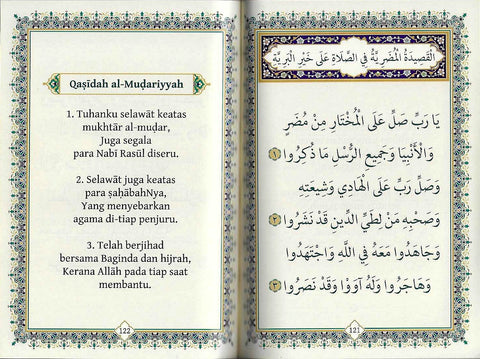 القَصِيدَةُ المُضَرِيَّةُ فِي الصَّلَاةِ عَلَى خَيْرِ البَرِيَّةِ
يَا رَبِّ صَلِّ عَلَى الْمُخْتَارِ مِنْ مُضَرٍ
وَالْأَنْبِيَا وَجَمِيعِ الرُّسْلِ مَا ذُكِرُوا ١
وَصَلِّ رَبِّ عَلَى الْهَادِي وَشِيعَتِهِ
وَصَحْبِهِ مَنْ لِطَيِّ الدِّينِ قَدْ نَشَرُوا ٢
وَجَاهَدُوا مَعَهُ فِي اللَّهِ وَاجْتَهَدُوا
وَهَاجَرُوا وَلَهُ آوَوْا وَقَدْ نَصَرُوا ٣
121
Qaṣīdah al-Muḍariyyah
1. Tuhanku selawāt keatas
mukhtār al-muḍar,
Juga segala
para Nabi Rasūl diseru.
2. Selawāt juga keatas
para ṣaḥābahNya,
Yang menyebarkan
agama di-tiap penjuru.
3. Telah berjihad
bersama Baginda dan hijrah,
Kerana Allāh pada tiap saat
membantu.
122